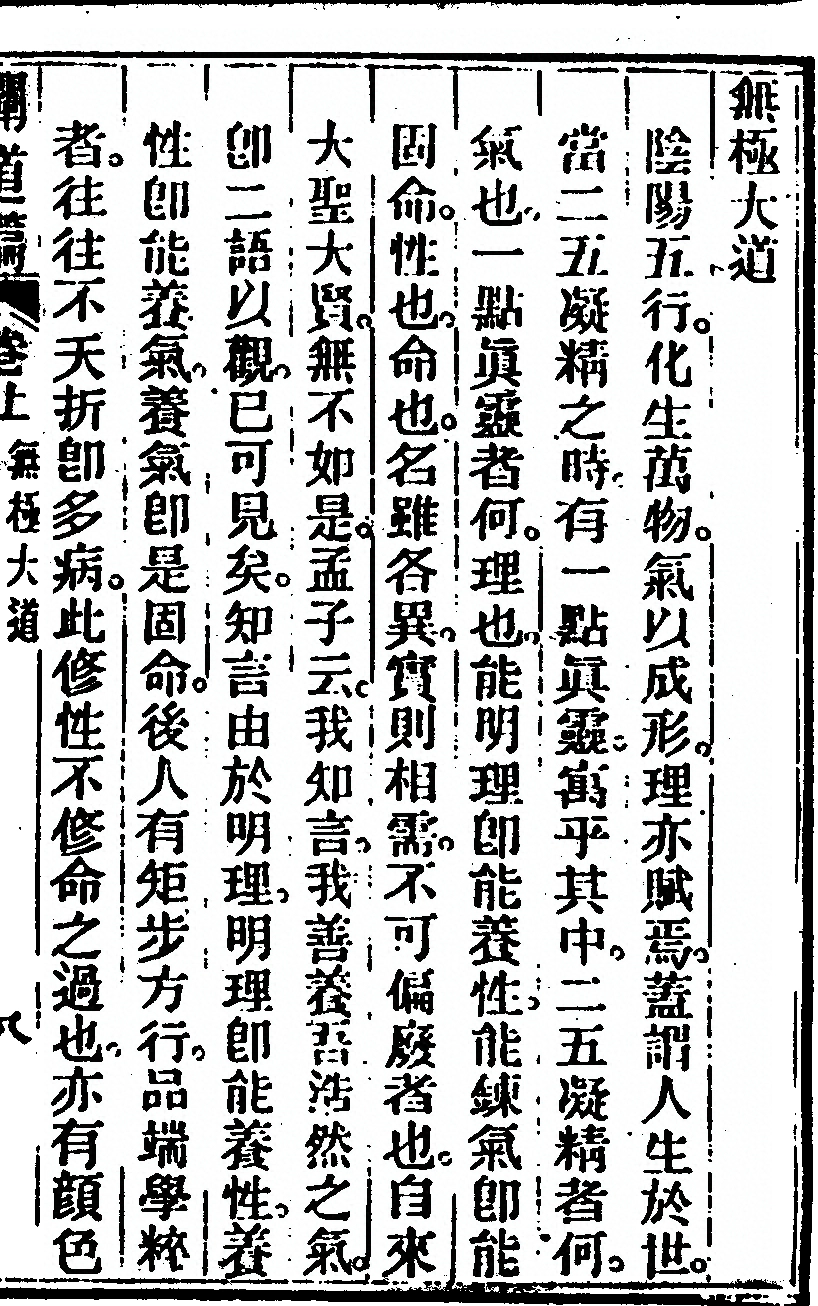 無極大道
陰陽五行。化生萬物。氣以成形。理亦賦焉。蓋謂人生於世。
當二五凝精之時。有一點眞靈。寓乎其中。二五凝精者何。
氣也。一點眞靈者何。理也。能明理卽能養性。能鍊氣卽能
固命。性也。命也。名雖各異。實則相需。不可偏廢者也。自來
大聖大賢。無不如是。孟子云。我知言。我善養吾浩然之氣。
卽二語以觀。已可見矣。知言由於明理。明理卽能養性。養
性卽能養氣。養氣卽是固命。後人有矩步方行。品端學粹
者。往往不夭折卽多病。此修性不修命之過也。亦有顏色
闡道篇 卷上 無極大道 八